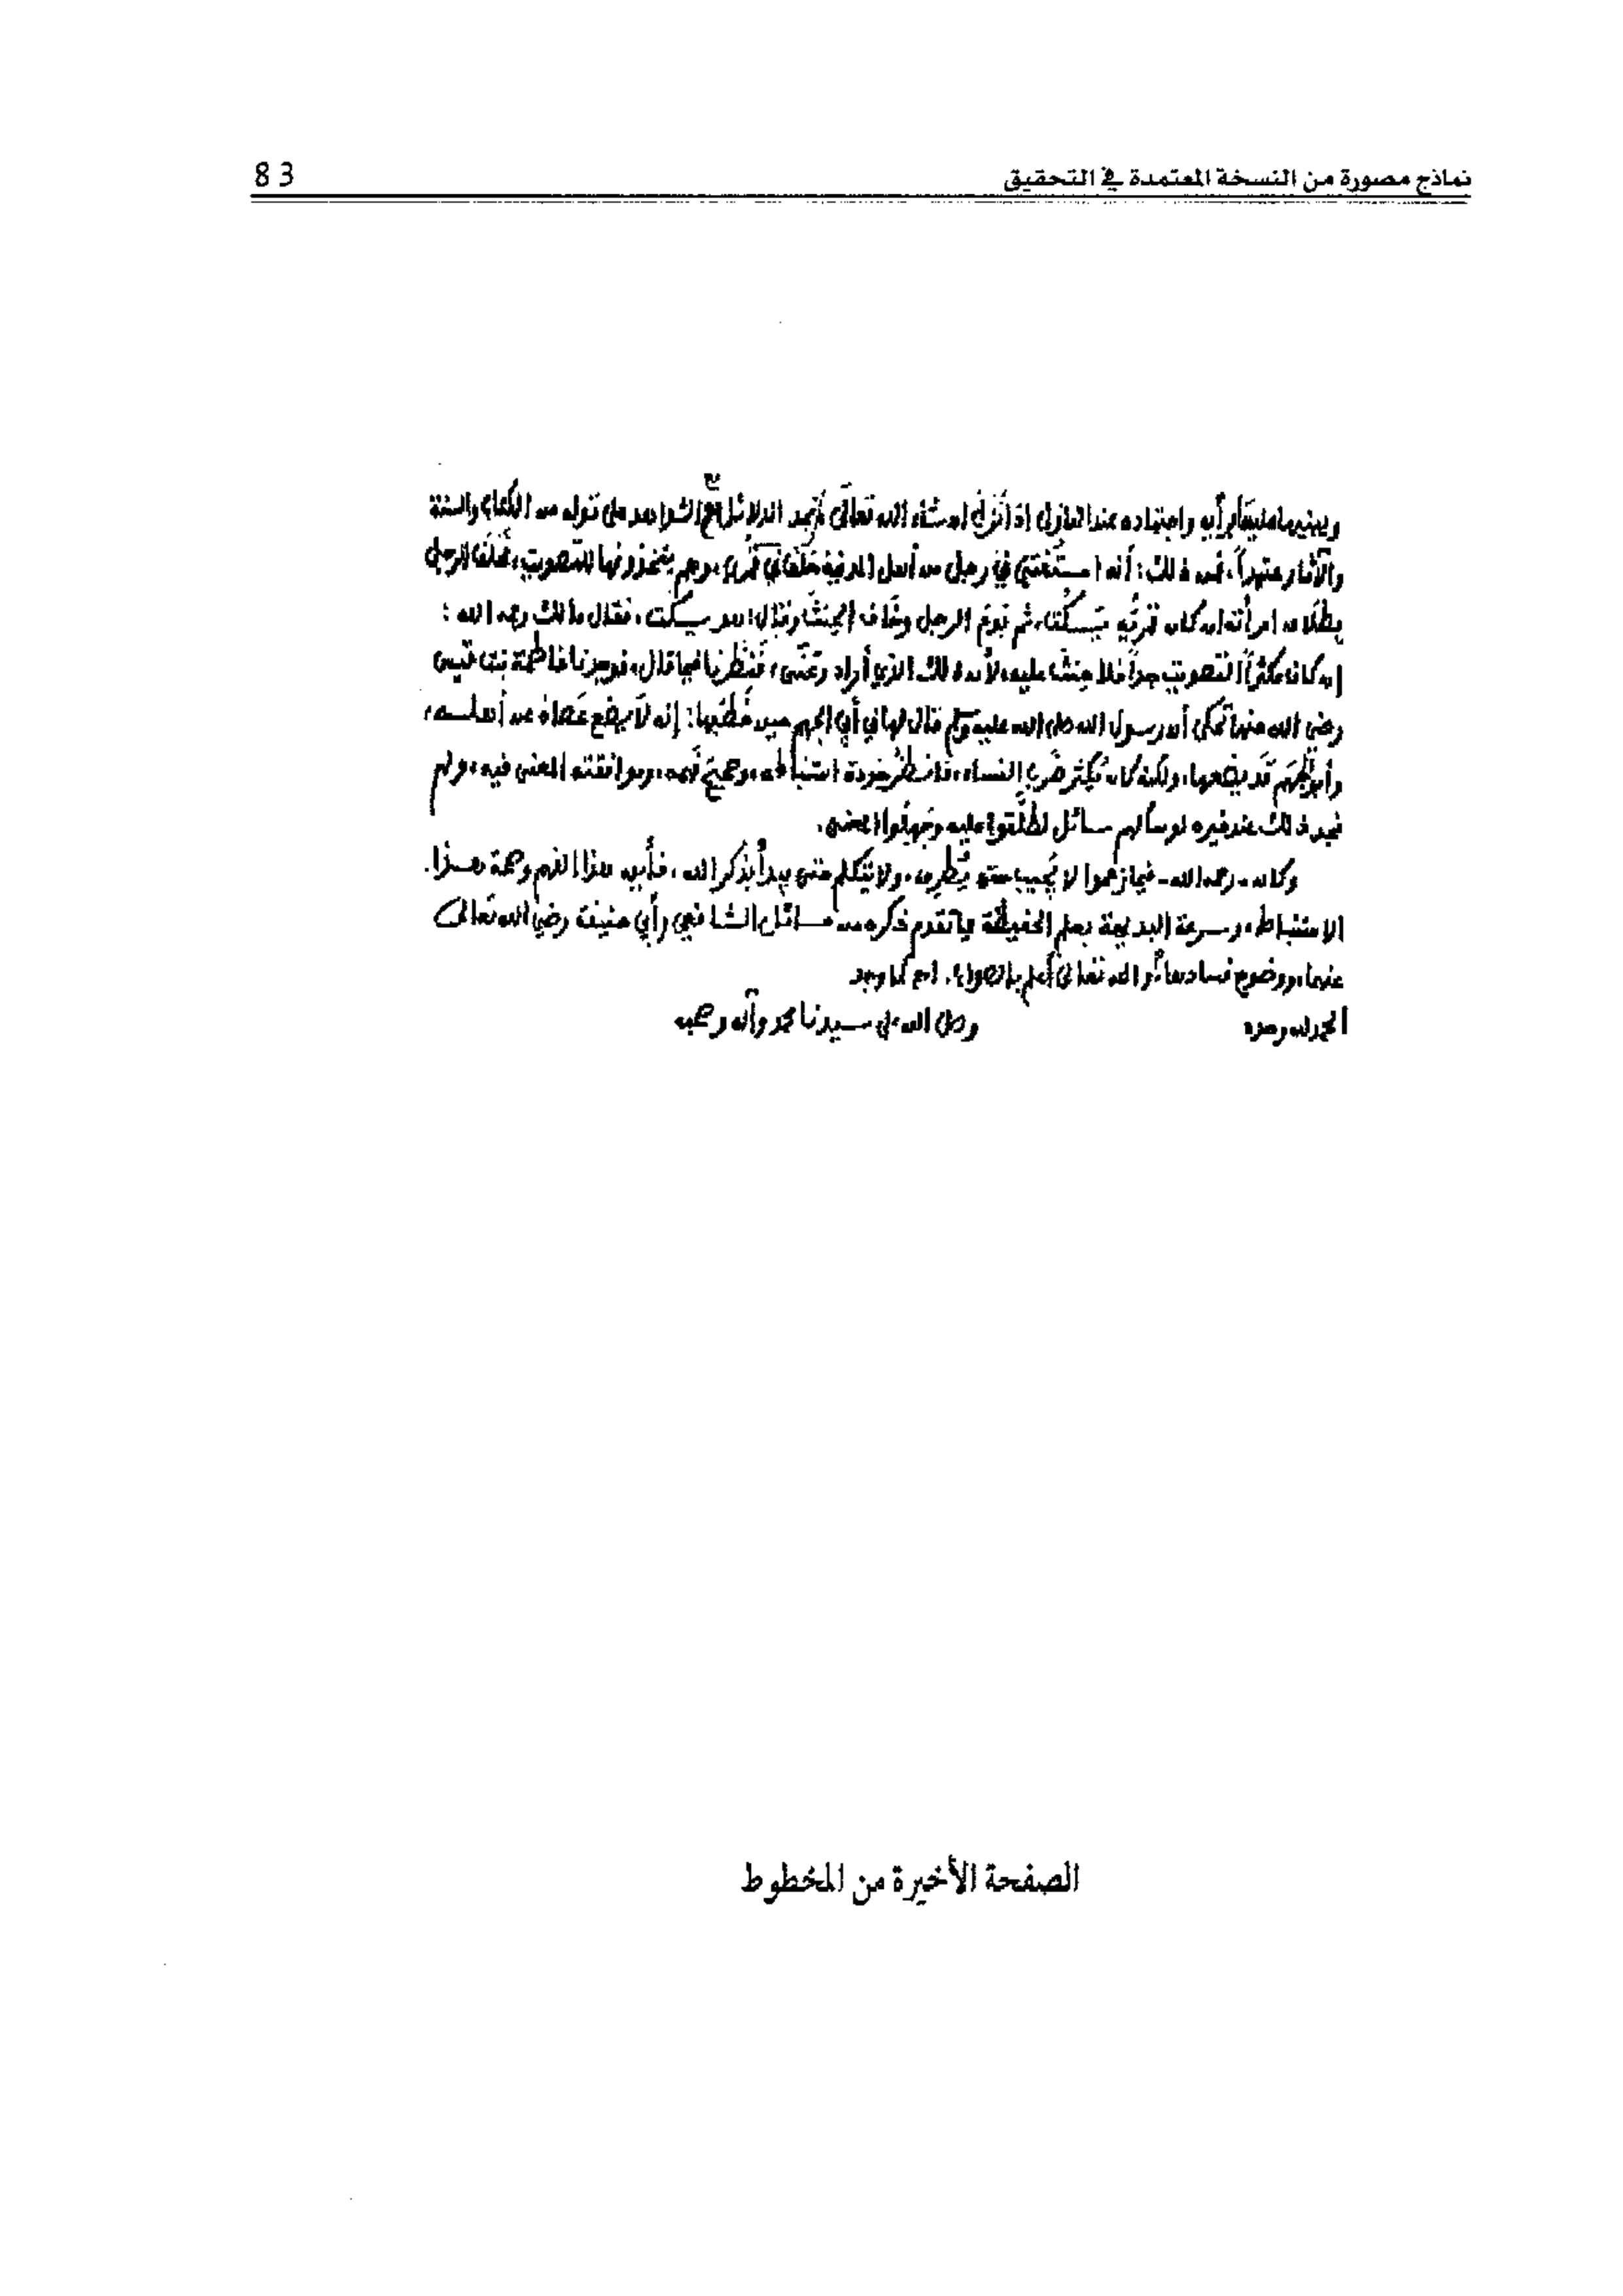 نماذج مصورة من النسخة المعتمدة في التحقيق
83
واجتهاده عند النوازل إذا نزل إن شاء الله تعالى تجد الدلائل الشواهد على قوله من الكتاب والسنة
والآثار، فمن ذلك: أنه استفتي في رجل من أهل المدينة حلف في، وهم يتخذونها للتصويت، فحلف الرجل
بطلاق امرأته إن كان، ثم الرجل وخاف الحنث وقال: سكت، فقال مالك رحمه الله:
إن كان مكثرا التصويت جدا فلا حنث عليه، لأن ذلك الذي أراد وعنى، فنظرنا فيما قال، فوجدنا فاطمة بنت قيس
رضي الله عنها تحكي أن رسول الله صلى الله عليه وسلم قال لها في أبي الجهم حين خطبها: إنه لا يضع عصاه عن أهله،
وأبو الجهم قد يضعها، ولكنه كان يكثر ضرب النساء، فانظر جودة استنباطه، وصحيح فهمه، وموافقته المعنى فيه، ولم
نجد ذلك عند غيره لو سألهم سائل لطلقوا عليه وجهلوا المعنى.
وكان -رحمه الله- فيما زعموا لا يجيب حتى يطرق، ولا يتكلم حتى يبدأ بذكر الله، فأين هذا الفهم وصحة هذا
الاستنباط، وسرعة البديهة بعلم الحقيقة مما تقدم ذكره من مسائل الشافعي وأبي حنيفة رضي الله تعالى
عنهما، ووضوح فسادها، والله تعالى أعلم بالصواب. اهـ كما وجد
الحمد لله وحده وصلى الله على سيدنا محمد وآله وصحبه
الصفحة الأخيرة من المخطوط